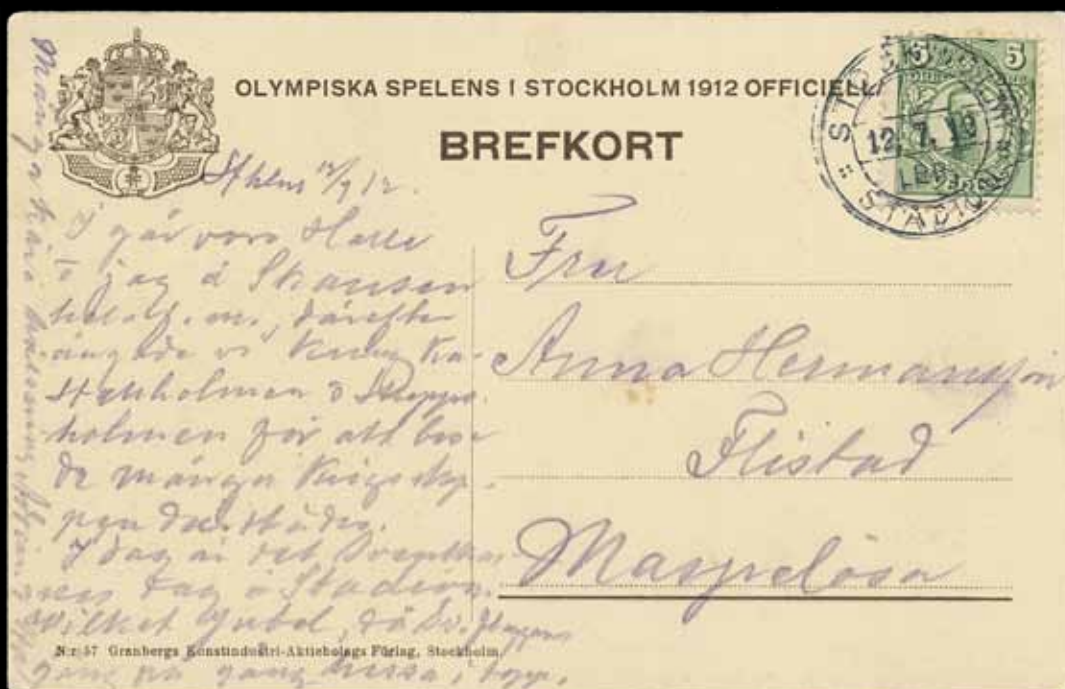 OLYMPISKA SPELENS I STOCKHOLM 1912 OFFICIELLA
BREFKORT
5 5
STOCKHOLM
12. 7. 12
LBR
STADION
Sthlm 12/7 12.
I går voro Halle
& jag å Skansen
hela f.m., därefter
ångade vi kring Ka-
stellholmen & Skepps-
holmen för att bese
de många krigsskep-
pen
I dag är det
dag å Stadion.
Vilket jubel, då Sv. flaggan
gång på gång hissas i topp.
Många kära hälsningar
Fru
Anna Hermansson
Flistad
Maspelösa
N:r 57 Granbergs Konstindustri-Aktiebolags Förlag, Stockholm.